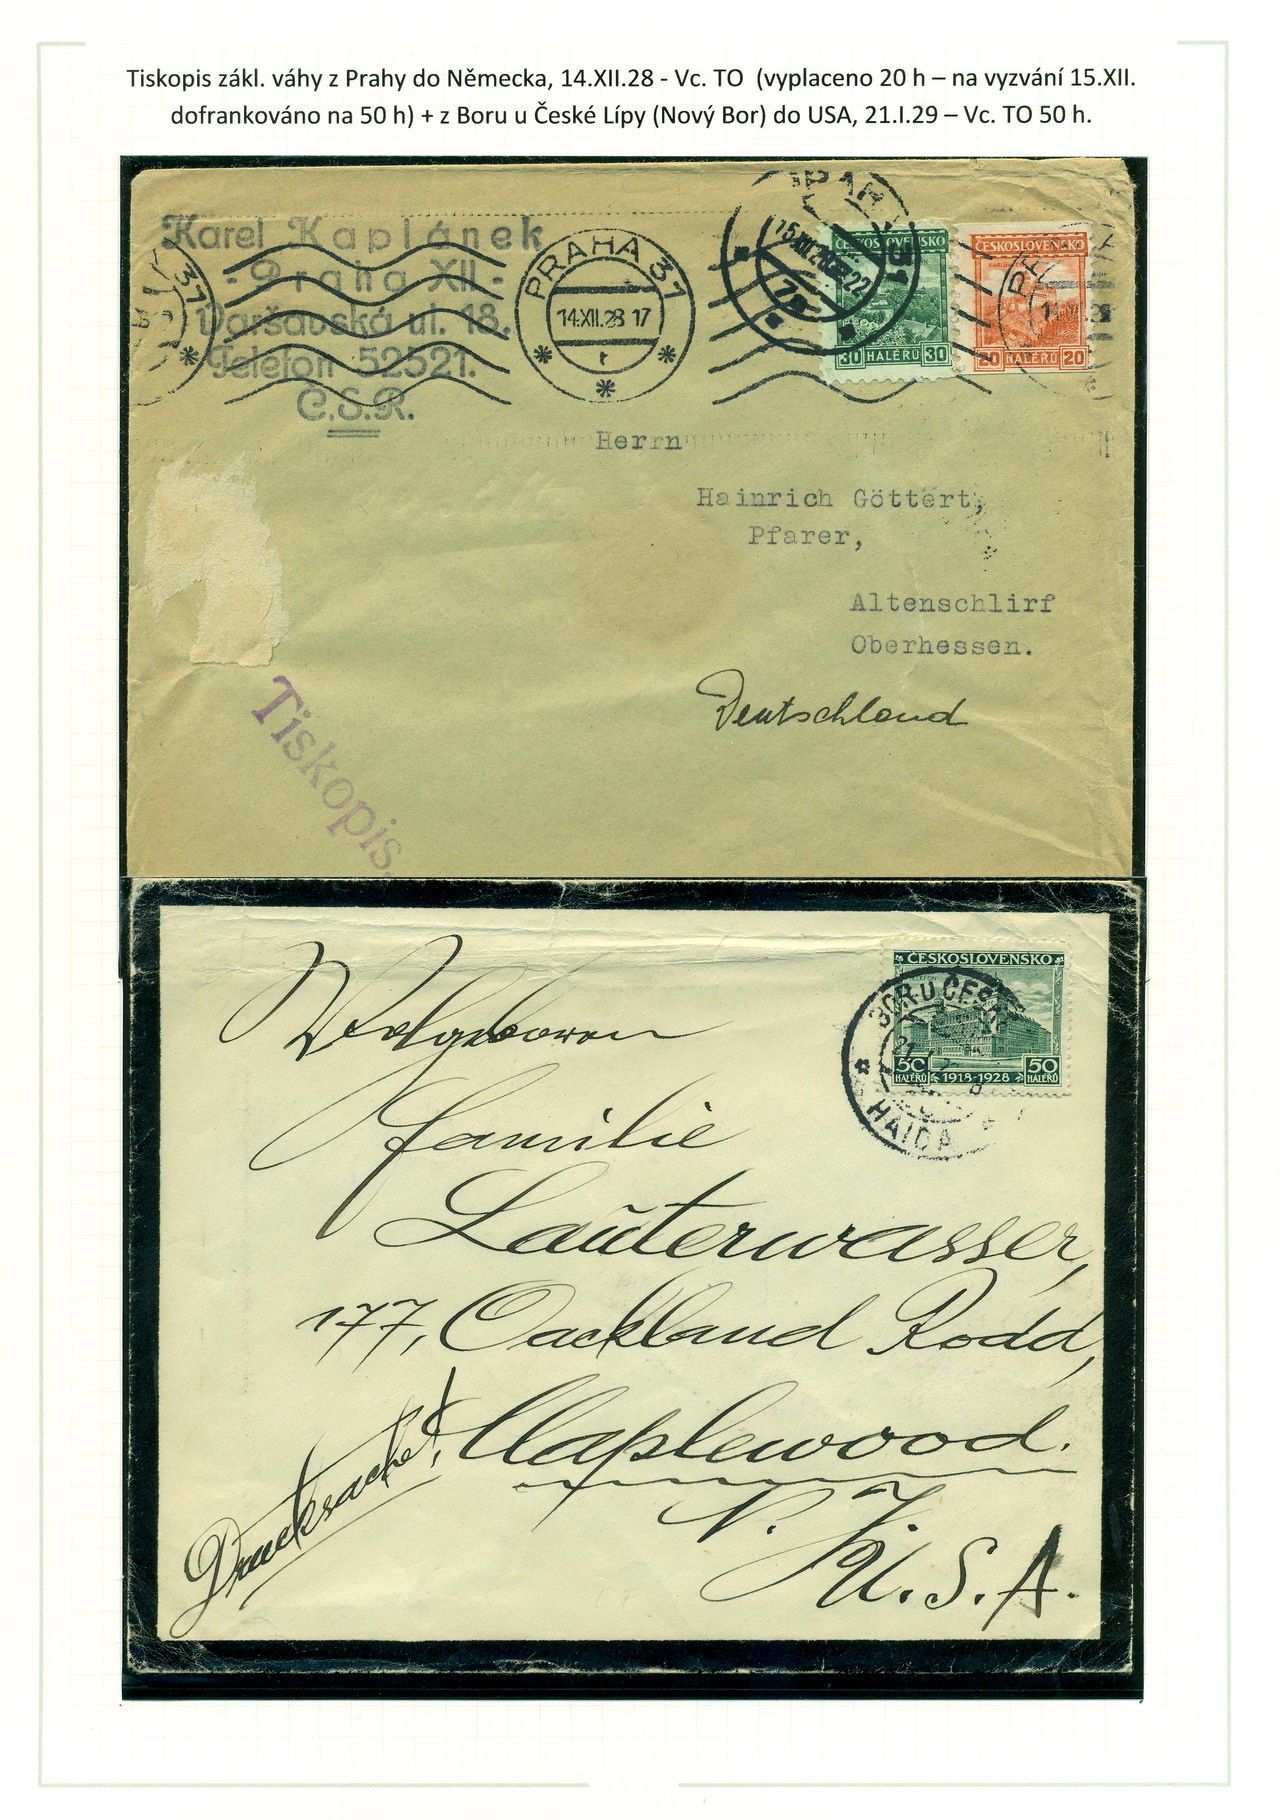 Tiskopis zákl. váhy z Prahy do Německa, 14.XII.28 - Vc. TO (vyplaceno 20 h – na vyzvání 15.XII.
dofrankováno na 50 h) + z Boru u České Lípy (Nový Bor) do USA, 21.I.29 – Vc. TO 50 h.
Karel Kaplánek
- Praha XII -
Varšavská ul. 18.
Telefon 52521.
Č.S.R.
31
PRAHA 31
14.XII.28 17
1
PRAHA 31
15.XII.28
22
7
ČESKOSLOVENSKO
30 HALÉŘŮ 30
ČESKOSLOVENSKO
20 HALÉŘŮ 20
Herrn
Hainrich Göttert,
Pfarer,
Altenschlirf
Oberhessen.
Deutschland
Tiskopis.
ČESKOSLOVENSKO
50 HALÉŘŮ 1918-1928 50 HALÉŘŮ
BOR U ČESKÉ
21. I.
HAIDA
Wolgeboren
Familie
Lauterwasser,
177, Oackland Rodd,
Maplewood.
Drucksache!
N. J.
U. S. A.